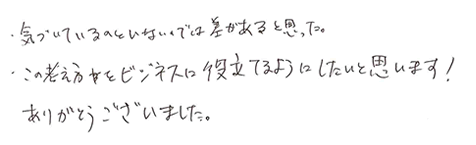 ・気づいているのといないのでは差があると思った。
・この考え方をビジネスに役立てるようにしたいと思います!
ありがとうございました。